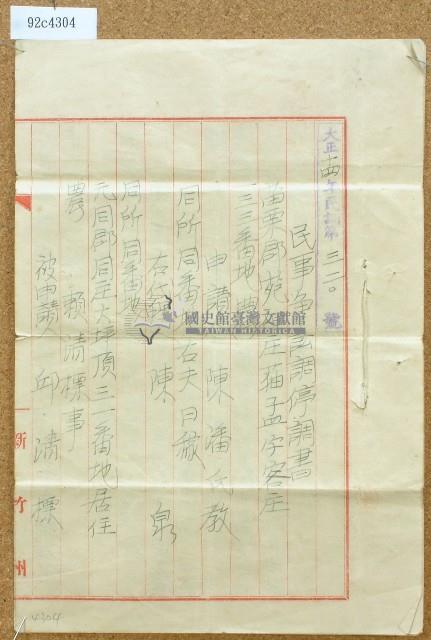 92c4304
大正十四年民調第三一〇號
民事爭訟調停調書
苗栗郡苑裡庄猫盂字客庄
三三番地 農
申請人 陳潘氏教
同所同番地右夫日稼
右代理人 陳 泉
同所同番地
元同郡同庄大坪頂三一番地居住
農 賴清標事
被申請人 邱清標
新竹州
國史館臺灣文獻館
TAIWAN HISTORICA
4304